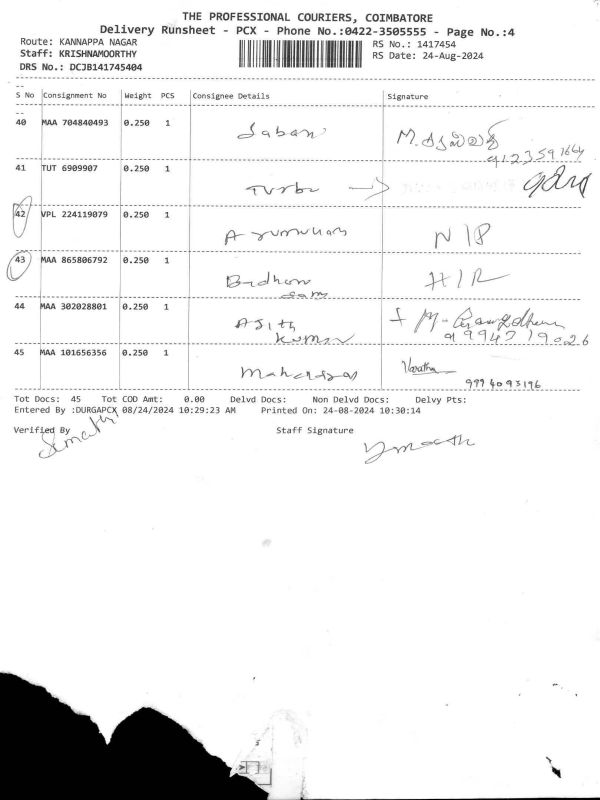 THE PROFESSIONAL COURIERS, COIMBATORE
Delivery Runsheet - PCX - Phone No.:0422-3505555 - Page No.:4
Route: KANNAPPA NAGAR RS No.: 1417454
Staff: KRISHNAMOORTHY RS Date: 24-Aug-2024
DRS No.: DCJB141745404
S No Consignment No Weight PCS Consignee Details Signature
40 MAA 704840493 0.250 1 Saban M.
9123591664
41 TUT 6909907 0.250 1
42 VPL 224119079 0.250 1 Arumugam N/P
43 MAA 865806792 0.250 1 H/R
44 MAA 302028801 0.250 1 Ajith
Kumar
45 MAA 101656356 0.250 1 Maharajan Varatha
9994093196
Tot Docs: 45 Tot COD Amt: 0.00 Delvd Docs: Non Delvd Docs: Delvy Pts:
Entered By :DURGAPCX 08/24/2024 10:29:23 AM Printed On: 24-08-2024 10:30:14
Verified By Staff Signature